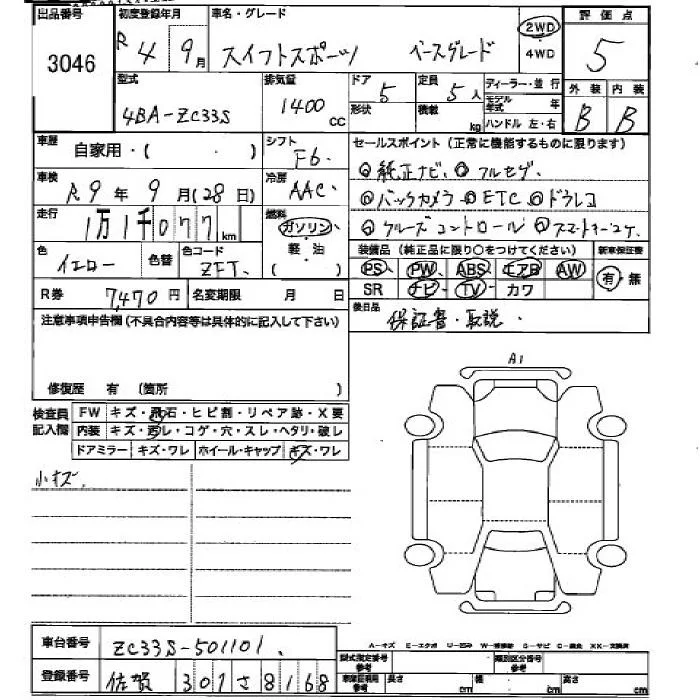 出品番号 初度登録年月 車名・グレード 評価点
3046 R4 9月 スイフトスポーツ ベースグレード 2WD 4WD 5
型式 排気量 ドア 定員 ディーラー・並行 外装 内装
4BA-ZC33S 1400cc 5 5人 モデル年式 年 B B
形状 積載 kg ハンドル 左・右
車歴 自家用・( ・ ) シフト F6. セールスポイント(正常に機能するものに限ります)
車検 R9年9月(28日) 冷房 AAC ◎純正ナビ. ◎フルセグ.
◎バックカメラ ◎ETC ◎ドラレコ
走行 1万1千077km 燃料 ガソリン・軽油 ( ) ◎クルーズコントロール ◎スマートキー2ケ.
色 イエロー 色替 色コード ZFT. 装備品(純正品に限り〇をつけてください) 新車保証書
PS PW ABS エアB AW 有・無
R券 7,470円 名変期限 月 日 SR ナビ TV カワ
注意事項申告欄(不具合内容等は具体的に記入して下さい) 後日品 保証書・取説.
修復歴 有 (箇所 )
A1
検査員記入欄 FW キズ・飛石・ヒビ割・リペア跡・X要
内装 キズ・汚レ・コゲ・穴・スレ・ヘタリ・破レ
ドアミラー キズ・ワレ ホイール・キャップ キズ・ワレ
小キズ.
車台番号 ZC33S-501101.
A-キズ E-エクボ U-凹み W-補修跡 S-サビ C-腐食 XX-交換済
型式指定番号 参考 類別区分番号 参考
登録番号 佐賀 301 さ 8168 車庫証明用参考 長さ cm 幅 cm 高さ cm